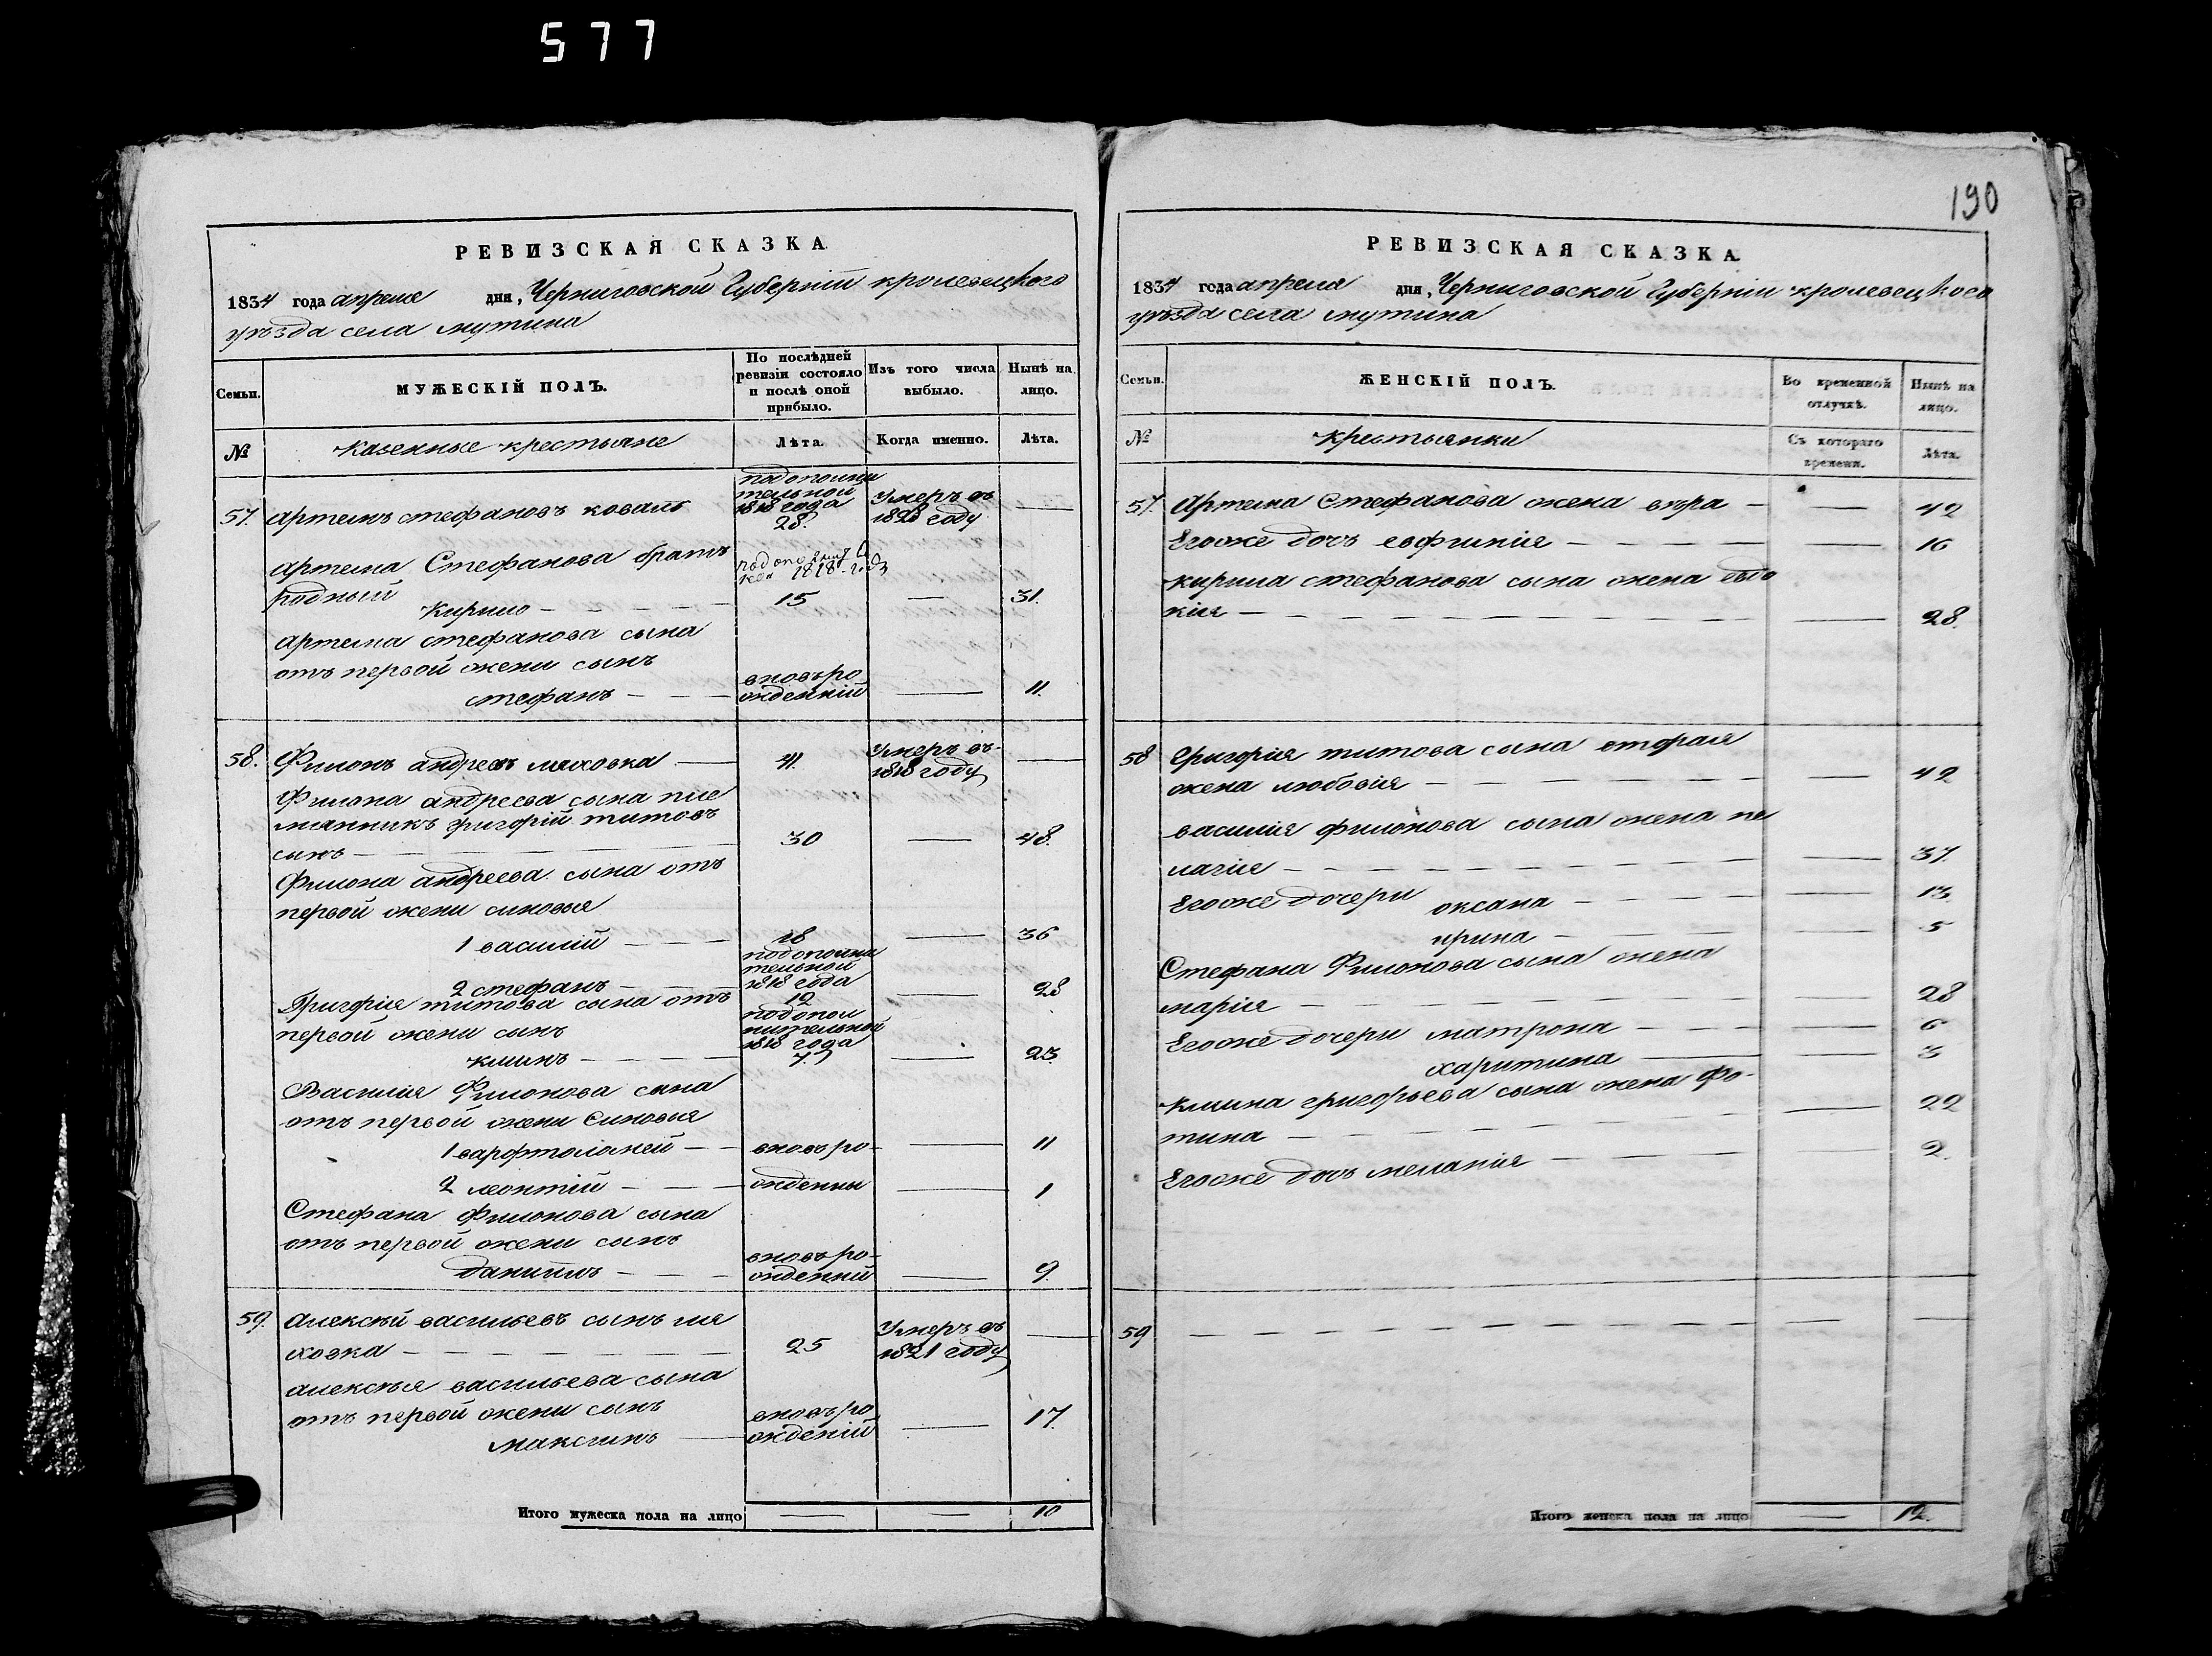 577
190
РЕВИЗСКАЯ СКАЗКА
1834 года апреля дня, Черниговской Губерніи кролевецкого
уѣзда села мутина
Семьи.
МУЖЕСКІЙ ПОЛЪ.
По послѣдней ревизіи состояло и послѣ оной прибыло.
Изъ того числа выбыло.
Нынѣ на лицо.
№
казенные крестьяне
Лѣта.
Когда именно.
Лѣта.
подополни
тельной
1818 года
57. артемъ стефановъ коваль 28. Умеръ въ 1828 году —
Артема Стефанова братъ
родный
кирило — 15 — 31.
Артема стефанова сына
отъ первой жени сынъ
стефанъ — вновъро
жденній — 11.
58. Филонъ андреевъ ляховка — 41. Умеръ въ 1818 году —
Филона андреева сына пле
мянникъ григорій титовъ
сынъ — 30 — 48.
Филона андреева сына отъ
первой жени синовья
1 василій — 18 — 36
подополни
тельной
1818 года
2 стефанъ — 12 — 28
Григорія титова сына отъ
первой жени сынъ
подопол
нительной
1818 года
климъ — 7. — 23.
Василія Филонова сына
отъ первой жени Синовья
1 варфтоломей — вновъ ро- — 11
2 леонтій — жденны — 1
Стефана Филонова сына
отъ первой жени сынъ
даниилъ — вновъ ро-
жденній — 9.
59. алексѣй васильевъ сынъ ля
ховка — 25 Умеръ въ 1821 году —
алексѣя васильева сына
отъ первой жени сынъ
максимъ — вновъро
жденій — 17.
Итого мужеска пола на лицо — — 10
РЕВИЗСКАЯ СКАЗКА
1834 года апреля дня, Черниговской Губерніи кролевецкого
уѣзда села мутина
Семьи.
ЖЕНСКІЙ ПОЛЪ.
Во временной отлучкѣ.
Нынѣ на лицо.
№
крестьянки
Съ котораго времени.
Лѣта.
57. Артема Стефанова жена вѣра — — 42
Егоже дочъ евфимія — — 16
кирила стефанова сына жена евдо
кія — — 28.
58 Григорія титова сына вторая
жена любовія — — 42
василія филонова сына жена пе
лагія — — 37.
Егоже дочери оксана — — 13
ирина — — 5
Стефана Филонова сына жена
марія — — 28
Егоже дочери матрона — — 6
харитина — — 3
клима григорьева сына жена Фо-
тина — — 22
Егоже дочъ меланія — — 2.
59 — — —
Итого женска пола на лицо — 12.